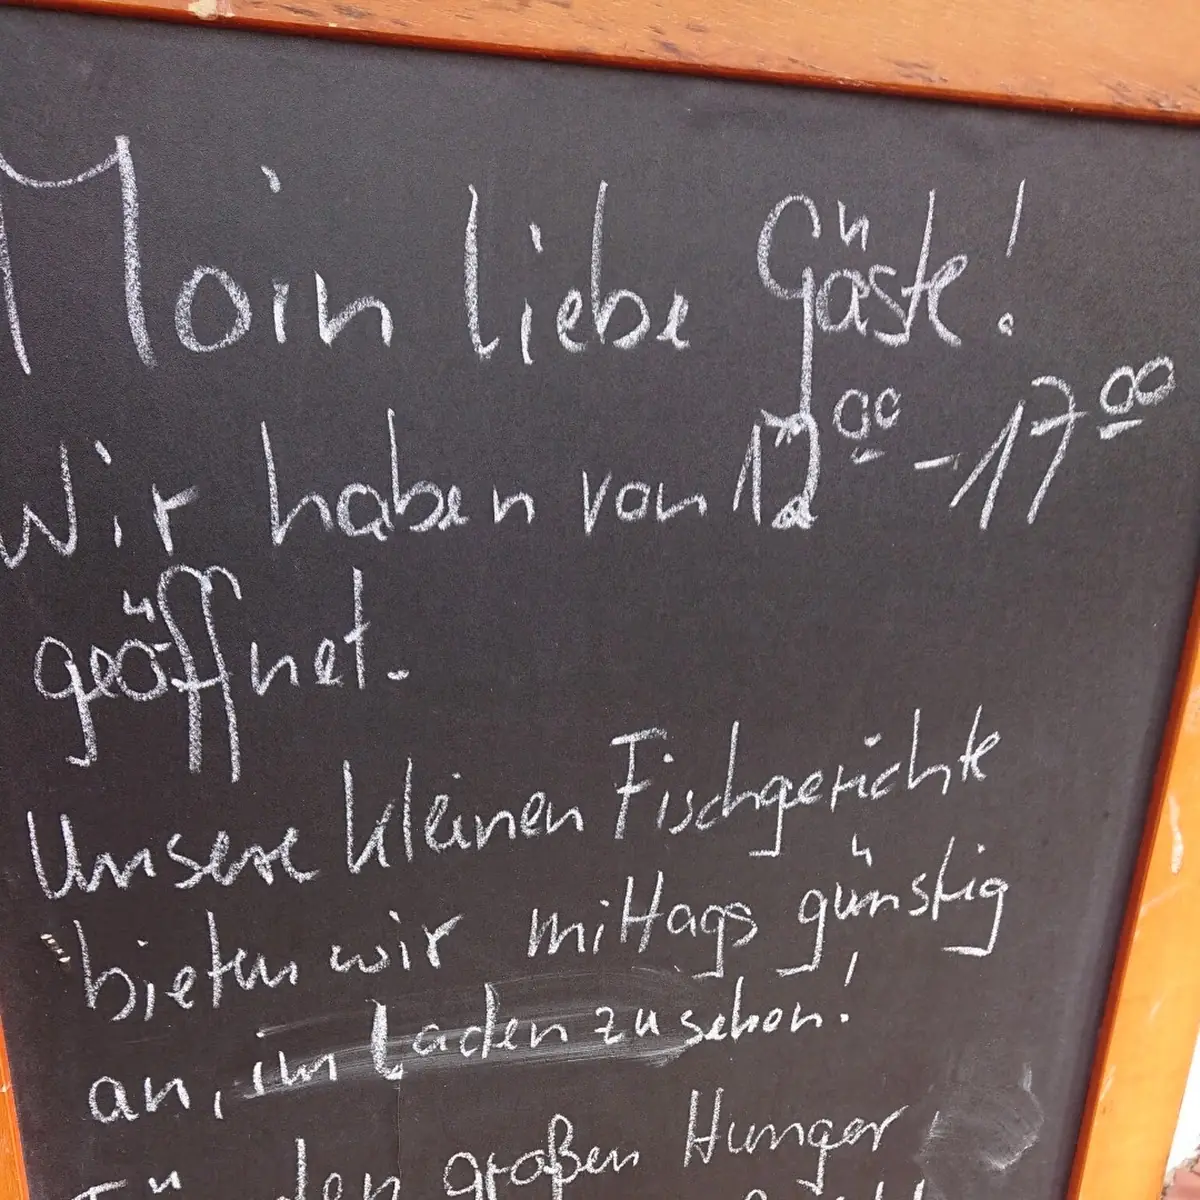 Moin liebe Gäste!
Wir haben von 12⁰⁰ - 17⁰⁰
geöffnet.
Unsere kleinen Fischgerichte
bieten wir mittags günstig
an, im Laden zu sehen!
Für den großen Hunger